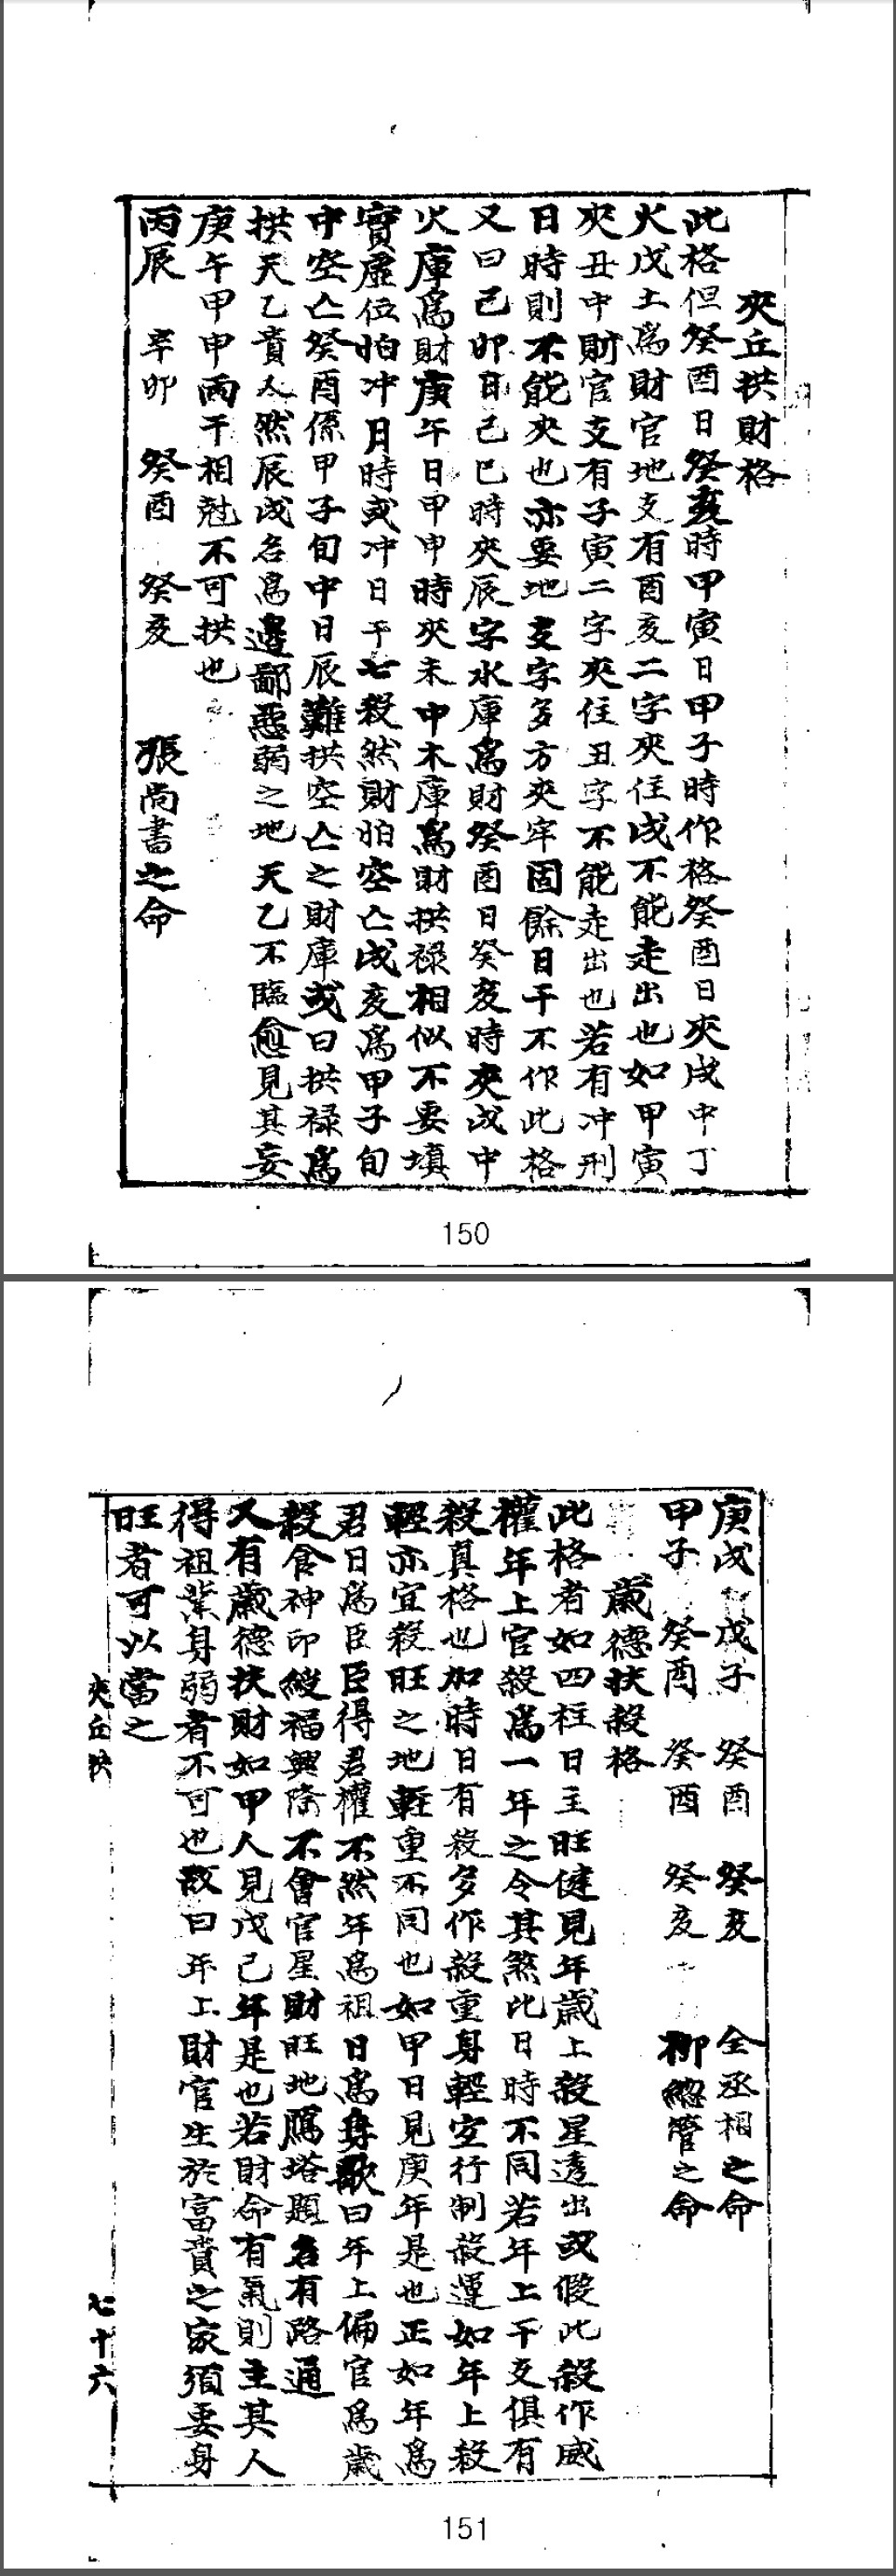 夾丘拱財格
此格但癸酉日癸亥時甲寅日甲子時作格癸酉日夾戌中丁
火戊土為財官地支有酉亥二字夾住戌不能走出也如甲寅
夾丑中財官支有子寅二字夾住丑字不能走出也若有冲刑
日時則不能夾也亦要地支字多方夾牢固餘日干不作此格
又曰己卯日己巳時夾辰字水庫為財癸酉日癸亥時夾戌中
火庫為財庚午日甲申時夾未中木庫為財拱祿相似不要塡
實虛位怕冲月時或冲日干七殺然財怕空亡戌亥為甲子旬
中空亡癸酉係甲子旬中日辰難拱空亡之財庫或曰拱祿為
拱天乙貴人然辰戌名為邊鄙惡弱之地天乙不臨愈見其妄
庚午甲申丙干相尅不可拱也
丙辰 辛卯 癸酉 癸亥 張尚書之命
150
庚戌 戊子 癸酉 癸亥 金丞相之命
甲子 癸酉 癸酉 癸亥 柳總管之命
歲德扶殺格
此格者如四柱日主旺健見年歲上殺星透出或假此殺作威
權年上官殺為一年之令其煞此日時不同若年上干支俱有
殺真格也加時日有殺多作殺重身輕宜行制殺運如年上殺
輕亦宜殺旺之地輕重不同也如甲日見庚年是也正如年為
君日為臣臣得君權不然年為祖日為身歌曰年上偏官為歲
殺食神印綬福興隆不會官星財旺地鴈塔題名有路通
又有歲德扶財如甲人見戊己年是也若財命有氣則主其人
得祖業身弱者不可也故曰年上財官生於富貴之家須要身
旺者可以當之
夾丘拱
七十六
151